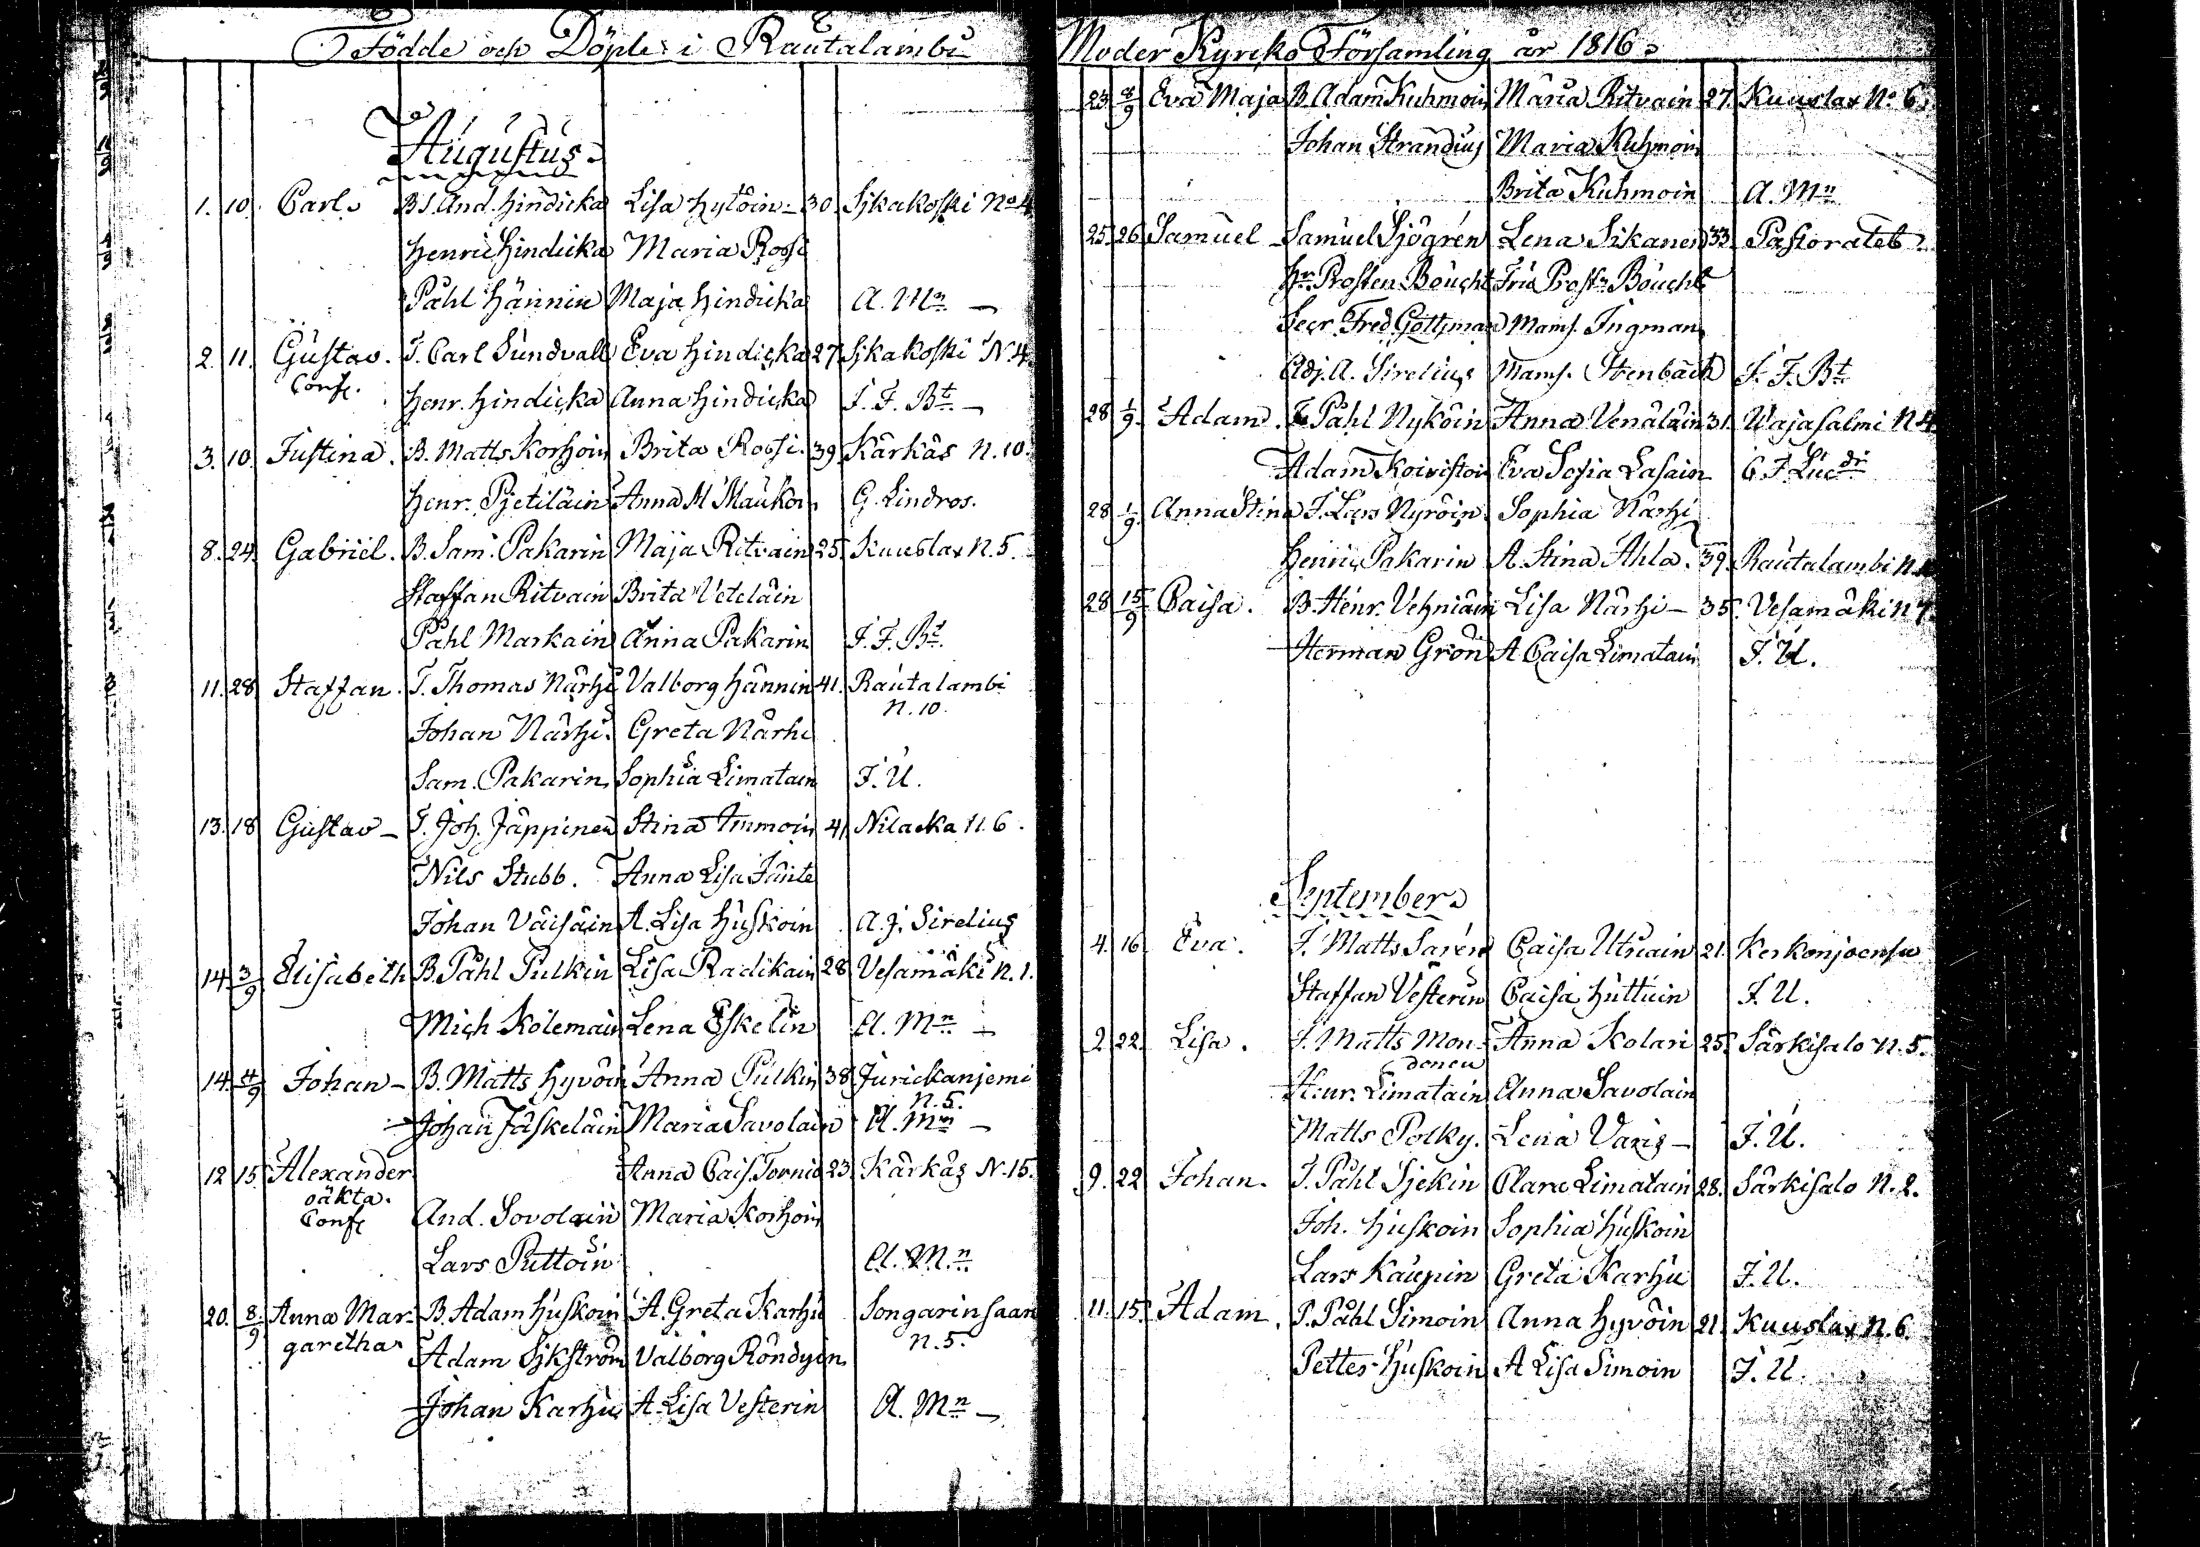 Födde och Döpte i Rautalambi
Augustus.
1. 10. Carl. B.S. And. Hindicka Lisa Hytöin - 30. Sjkakoski No 4
Henric Hindicka Maria Rossi
Påhl Hännin Maja Hindicka A. Mn -
2. 11. Gustav. T. Carl Sundvall Eva Hindicka 27. Sjkakoski N. 4.
Conf.
Henr. Hindicka Anna Hindicka J. F. Bt. -
3. 10. Justina. B. Matts Korhoin Brita Rossi. 39. Kärkäs N. 10.
Henr. Pjetiläin Anna M Maukoin G. Lindros.
8. 24. Gabriel. B. Sam. Pakarin Maja Ritvain 25. Kuuslax N. 5.
Staffan Ritvain Brita Veteläin
Påhl Markain Anna Pakarin J. F. Bt.
11. 28. Staffan. T. Thomas Närhi Valborg Hännin 41. Rautalambi
N. 10.
Johan Närhi. Greta Närhi
Sam. Pakarin Sophia Limatain J. U.
13. 18 Gustav - T. Joh. Jäppinen Stina Immoin 41 Nilacka N. 6.
Nils Stubb. Anna Lisa Jänte
Johan Väisäin A. Lisa Huskoin A. J. Sirelius
14. 3/9 Elisabeth B. Påhl Pulkin Lisa Radikain 28 Vesamäki N. 1.
Mich Kolemain Lena Eskelin A. Mn -
14. 4/9 Johan - B. Matts Hyvöin Anna Pulkin 38 Jurickanjemi
N. 5.
Johan Jäskeläin Maria Savolain A. Mn -
12 15. Alexander Anna Cais. Tornia 23. Kärkäs N. 15.
oäkta.
Conf. And. Sovolain Maria Korhoin
Lars Puttoin A. Mn.
20. 8/9 Anna Mar- B. Adam Huskoin A. Greta Karhu Songarinsaari
garetha N. 5.
Adam Sjkström Valborg Röndyin
Johan Karhu A Lisa Vesterin A. Mn -
Moder Kyrcko Församling år 1816.
23 8/9 Eva Maja B. Adam Kuhmoin Maria Ritvain 27. Kuuslax No 6.
Johan Strandius Maria Kuhmoin
Brita Kuhmoin A. Mn
25 26 Samuel Samuel Sjögrén Lena Sikanen 33. Pastoratet.
Hr. Prosten Böucht Fru Prostn Böucht
Secr. Fred. Gottman Mams. Ingman
Adj. A. Sirelius Mams. Stenbäck J. F. Bt.
28 1/9. Adam. T. Påhl Nyköin Anna Venäläin 31. Wajasalmi N 4
Adam Koivistoin Eva Sofia Lasain C. F. Lucdr
28 1/9. Anna Stina J. Lars Nyröin. Sophia Närhi
Henric Pakarin A. Stina Ahla. 39. Rautalambi N.
28 15/9 Caisa. B. Henr. Vehniäin Lisa Närhi - 35. Vesamäki N 7.
Herman Grön A Caisa Limatain J. U.
September
4. 16 Eva. J. Matts Sarén Caisa Utriain 21. Kerkonjoensu
Staffan Vesterin Caisa Huttuin J. U.
2 22. Lisa. J. Matts Mon- Anna Kolari 25. Särkisalo N. 5.
donen
Henr. Limatain Anna Savolain
Matts Polky. Lena Varis - J. U.
9. 22 Johan. T. Påhl Sjekin Clara Limatain 28. Särkisalo N. 2.
Joh. Huskoin Sophia Huskoin
Lars Kaupin Greta Karhu J. U.
11. 15. Adam. T. Påhl Simoin Anna Hyvöin 21. Kuuslax N. 6.
Petter Huskoin A Lisa Simoin J. U.